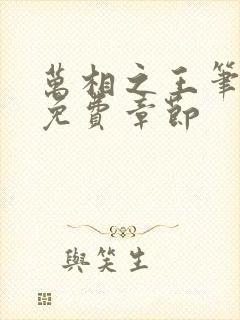 萬相之王筆
免費章節
與笑生